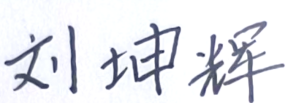 刘坤辉